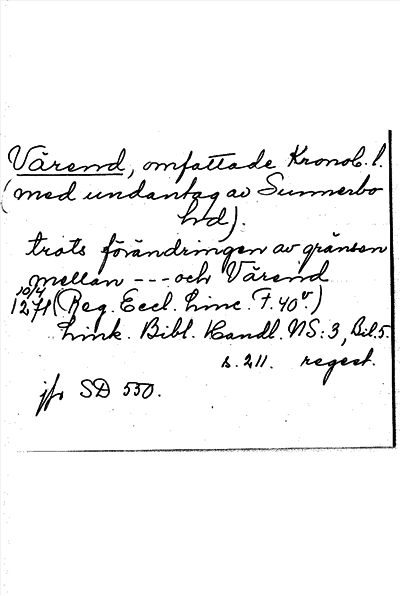 Värend, omfattade Kronob. l.
(med undantag av Sunnerbo
hd).
trots förändringen av gränsen
mellan --- och Värend
10/4
1271 (Reg. Eccl. Linc. F. 40v.)
Link. Bibl. Handl. NS: 3, Bil. 5.
s. 211. regest.
jfr SD 550.